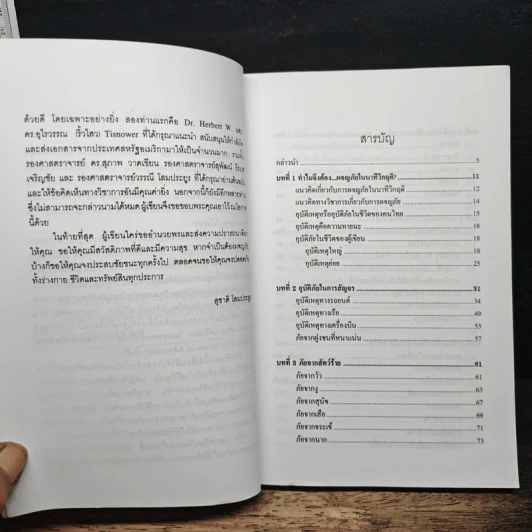 ด้วยดี โดยเฉพาะอย่างยิ่ง สองท่านแรกคือ Dr. Herbert W. และ
ดร.อุไรวรรณ (ริ้วไสว) Tisnower ที่ได้กรุณาแนะนำ สนับสนุนให้กำลังใจ
และส่งเอกสารจากประเทศสหรัฐอเมริกามาให้เป็นจำนวนมาก รวมทั้ง
รองศาสตราจารย์ ดร.สุภาพ วาดเขียน รองศาสตราจารย์สุพัฒน์
เจริญชัย และ รองศาสตราจารย์วรรณี โสมประยูร ที่ได้กรุณาอ่านต้นฉบับ
และให้ข้อคิดเห็นทางวิชาการอันมีคุณค่ายิ่ง นอกจากนี้ก็ยังมีอีกหลายท่าน
ซึ่งไม่สามารถจะกล่าวนามได้หมด ผู้เขียนจึงขอขอบพระคุณเอาไว้ ณ โอกาส
นี้ด้วย
ในท้ายที่สุด ผู้เขียนใคร่ขออำนวยพรและส่งความปรารถนาดีมา
ให้คุณ ขอให้คุณมีสวัสดิภาพที่ดีและมีความสุข หากจำเป็นต้องผจญภัย
บ้างก็ขอให้คุณจงประสบชัยชนะทุกครั้งไป ตลอดจนขอให้คุณจงปลอดภัย
ทั้งร่างกาย ชีวิตและทรัพย์สินทุกประการ
สุชาติ โสมประยูร
สารบัญ
กล่าวนำ 5
บทที่ 1 ทำไมจึงต้อง...ผจญภัยในนาทีวิกฤติ? 11
แนวคิดเกี่ยวกับการผจญภัยในนาทีวิกฤติ 11
แนวคิดทางวิชาการเกี่ยวกับการผจญภัย 16
อุบัติเหตุหรืออุบัติภัยในชีวิตของคนไทย 18
อุบัติเหตุคือความหายนะ 18
อุบัติภัยในชีวิตของผู้เขียน 18
อุบัติเหตุใหญ่ 18
อุบัติเหตุย่อย 25
บทที่ 2 อุบัติภัยในการสัญจร 31
อุบัติเหตุทางรถยนต์ 34
อุบัติเหตุทางเรือ 49
อุบัติเหตุทางเครื่องบิน 53
ภัยจากฝูงชนที่หนาแน่น 57
บทที่ 3 ภัยจากสัตว์ร้าย 61
ภัยจากวัว 61
ภัยจากงู 63
ภัยจากสุนัข 67
ภัยจากเสือ 69
ภัยจากจระเข้ 71
ภัยจากนาก 73